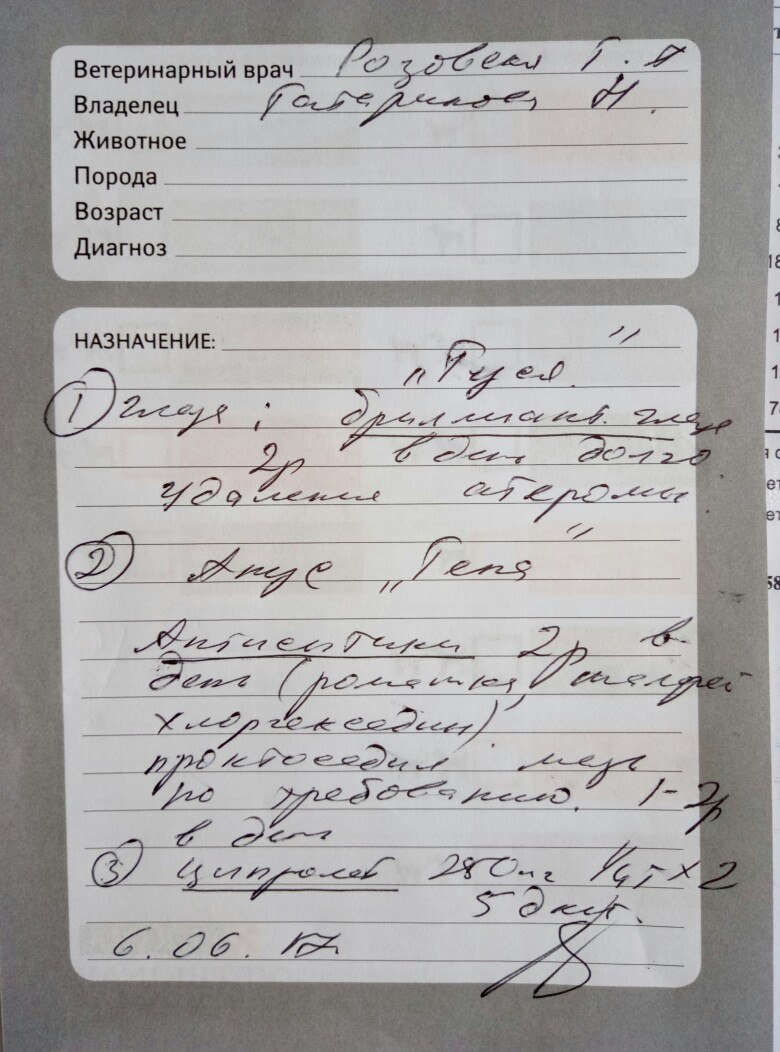 Ветеринарный врач Розовская Т. А
Владелец Татаринова Н.
Животное
Порода
Возраст
Диагноз
НАЗНАЧЕНИЕ:
„Туся"
1) глаза: бриллиант. глаза
2р в день долго
удаление атеромы
2) Анус „Тепа"
Антисептики 2р в
день (ромашка, шалфей
хлоргекседин)
проктоседил мазь
по требованию. 1-2р
в день
3) ципролет 250мг 1/4т х 2
5 дней.
6.06.17